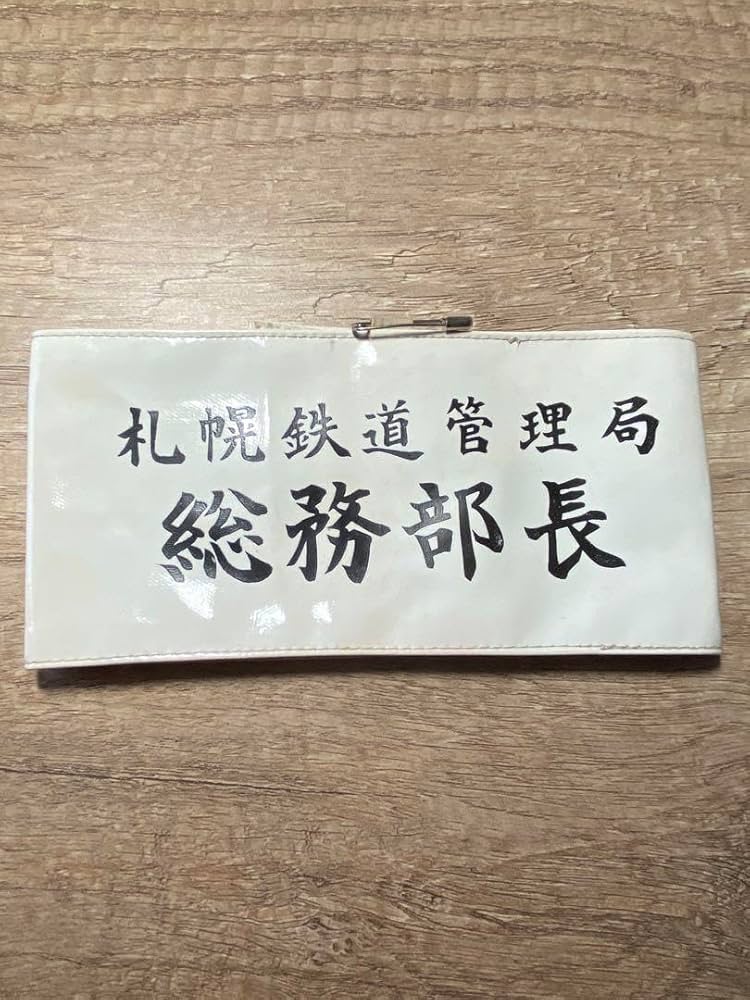 札幌鉄道管理局
総務部長